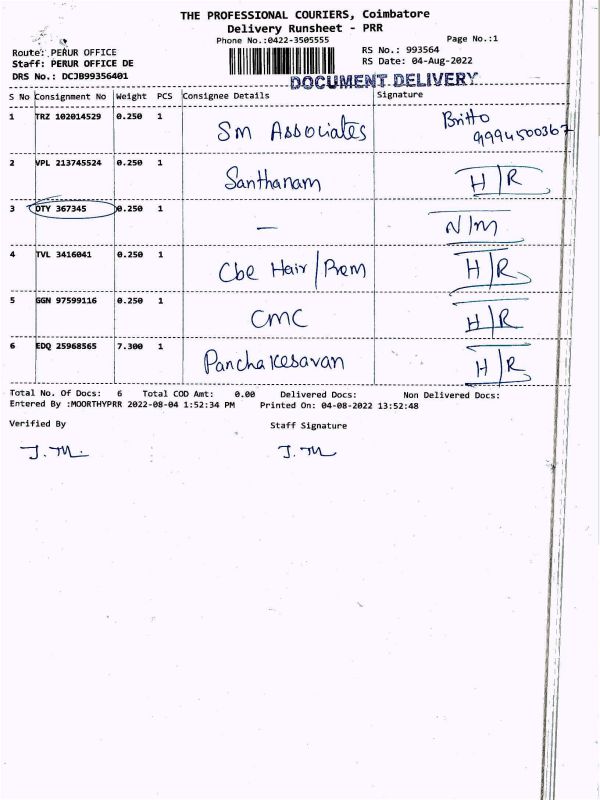 THE PROFESSIONAL COURIERS, Coimbatore
Delivery Runsheet - PRR
Phone No.:0422-3505555
Page No.:1
Route: PERUR OFFICE
RS No.: 993564
Staff: PERUR OFFICE DE
RS Date: 04-Aug-2022
DRS No.: DCJB99356401
DOCUMENT DELIVERY
S No Consignment No Weight PCS Consignee Details Signature
1 TRZ 102014529 0.250 1 SM Associates Britto
9994500367
2 VPL 213745524 0.250 1 Santhanam H/R
3 DTY 367345 0.250 1 — N/M
4 TVL 3416041 0.250 1 Cbe Hair/Prem H/R
5 GGN 97599116 0.250 1 CMC H/R
6 EDQ 25968565 7.300 1 Panchakesavan H/R
Total No. Of Docs: 6 Total COD Amt: 0.00 Delivered Docs: Non Delivered Docs:
Entered By :MOORTHYPRR 2022-08-04 1:52:34 PM Printed On: 04-08-2022 13:52:48
Verified By Staff Signature
J.M. J.M